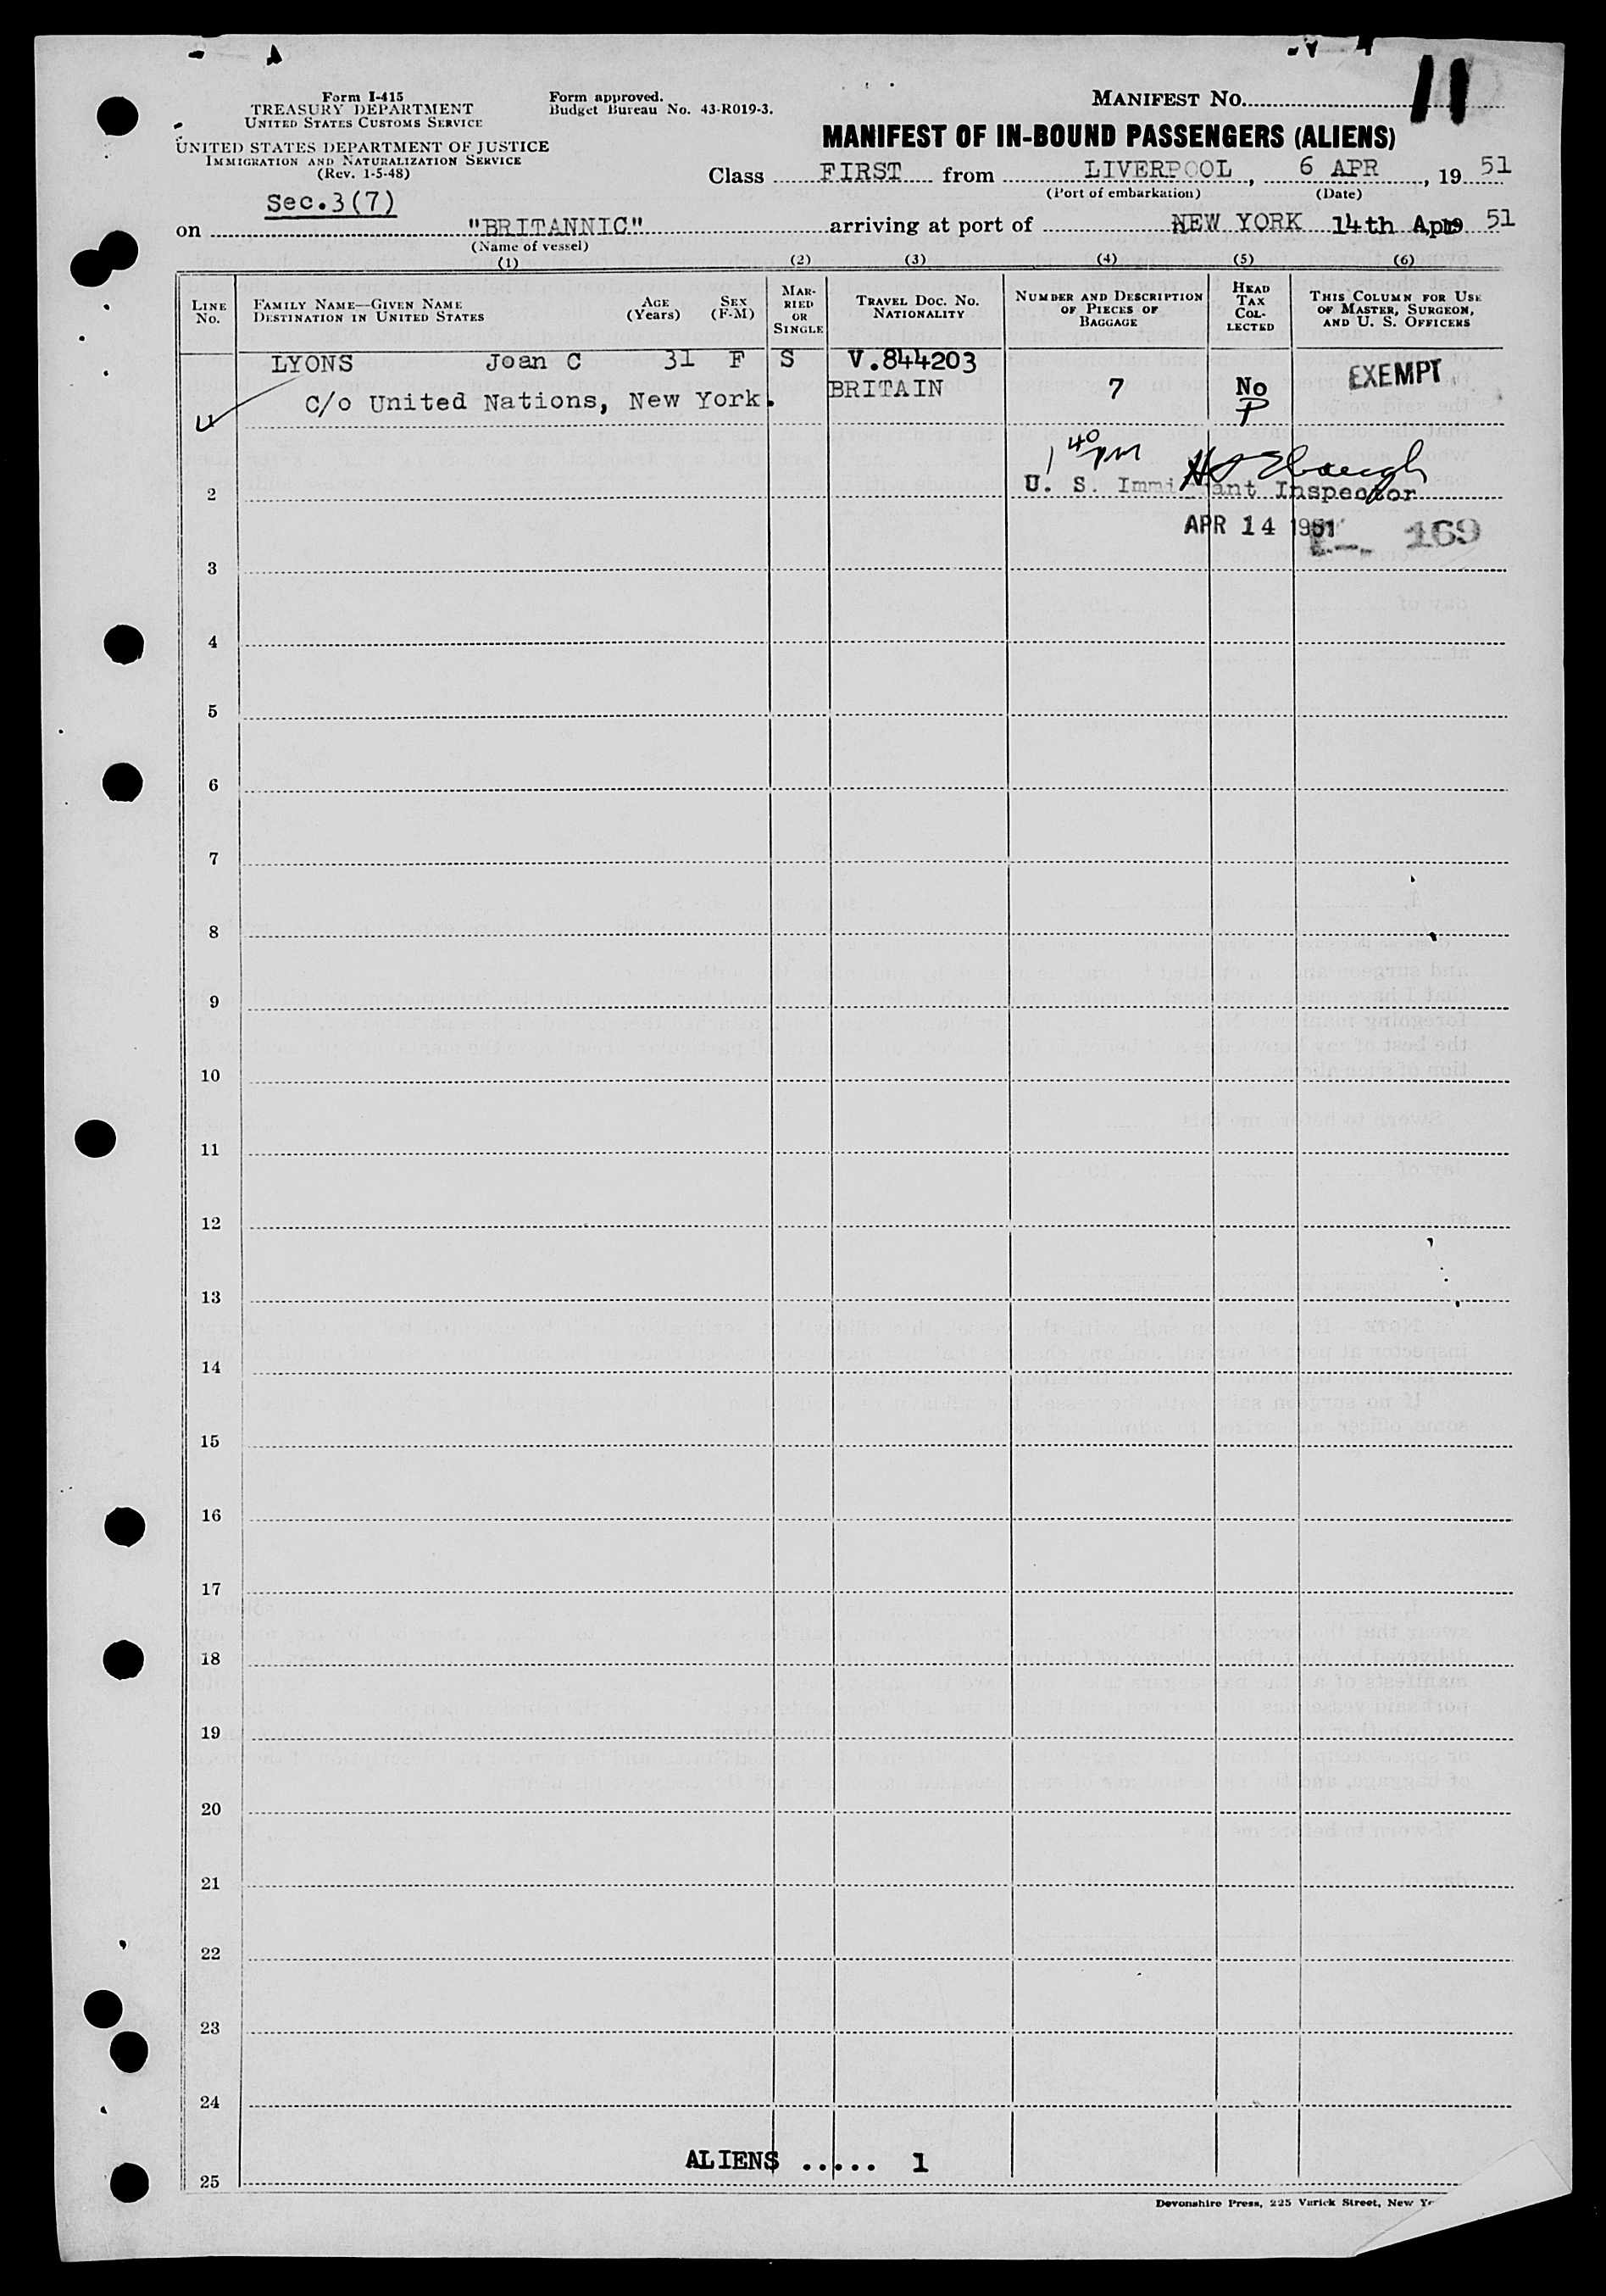 11
Form I-415
TREASURY DEPARTMENT
UNITED STATES CUSTOMS SERVICE
UNITED STATES DEPARTMENT OF JUSTICE
IMMIGRATION AND NATURALIZATION SERVICE
(Rev. 1-5-48)
Form approved.
Budget Bureau No. 43-R019-3.
MANIFEST NO.
MANIFEST OF IN-BOUND PASSENGERS (ALIENS)
Class FIRST from LIVERPOOL, 6 APR, 19 51
(Port of embarkation) (Date)
Sec.3(7)
on "BRITANNIC" arriving at port of NEW YORK 14th Apr 19 51
(Name of vessel)
(1) (2) (3) (4) (5) (6)
LINE NO.
FAMILY NAME—GIVEN NAME
DESTINATION IN UNITED STATES
AGE (Years)
SEX (F-M)
MARRIED OR SINGLE
TRAVEL DOC. NO.
NATIONALITY
NUMBER AND DESCRIPTION OF PIECES OF BAGGAGE
HEAD TAX COLLECTED
THIS COLUMN FOR USE OF MASTER, SURGEON, AND U. S. OFFICERS
LYONS Joan C 31 F S V.844203
EXEMPT
1 c/o United Nations, New York. BRITAIN 7 No
P
1 40 PM
2 U. S. Immigrant Inspector
APR 14 1951 169
3
4
5
6
7
8
9
10
11
12
13
14
15
16
17
18
19
20
21
22
23
24
ALIENS ..... 1
25
Devonshire Press, 225 Varick Street, New